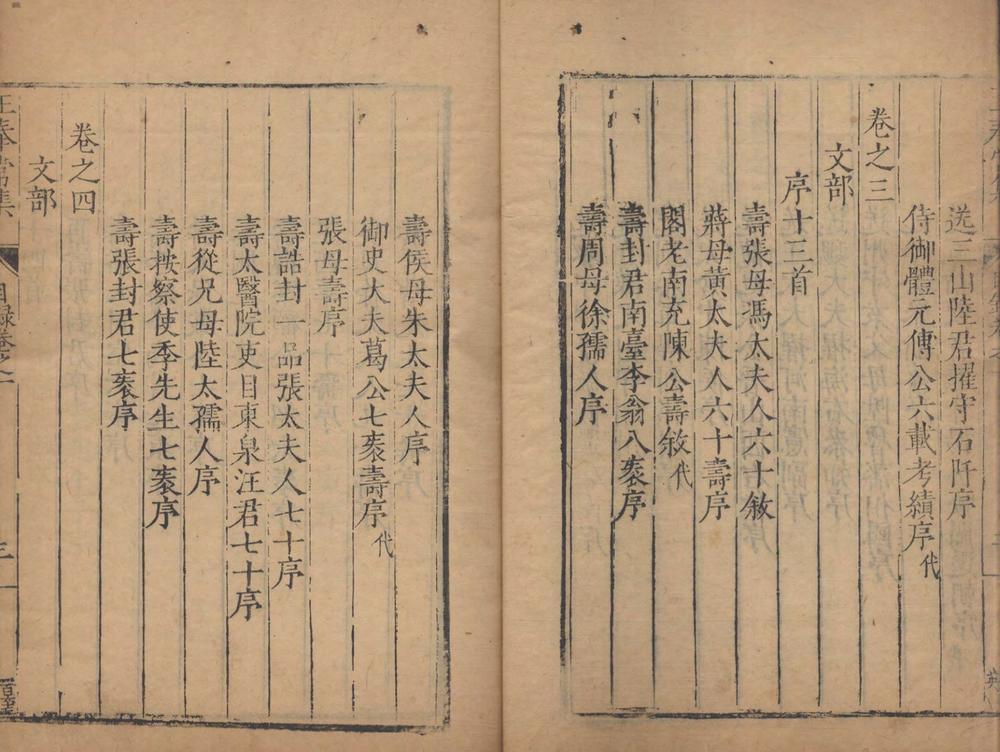 送三山陸君擢守石阡序
侍御體元傳公六載考績序代
卷之三
文部
序十三首
壽張母馮太夫人六十敘
蔣母黃太夫人六十壽序
閣老南充陳公壽敘代
壽封君南臺李翁八袠序
壽周母徐孺人序
壽侯母朱太夫人序
御史大夫葛公七袠壽序代
張母壽序
壽誥封一品張太夫人七十序
壽太醫院吏目東泉汪君七十序
壽從兄母陸太孺人序
壽按察使季先生七袠序
壽張封君七袠序
卷之四
文部
王奉常集
目錄卷之一
三